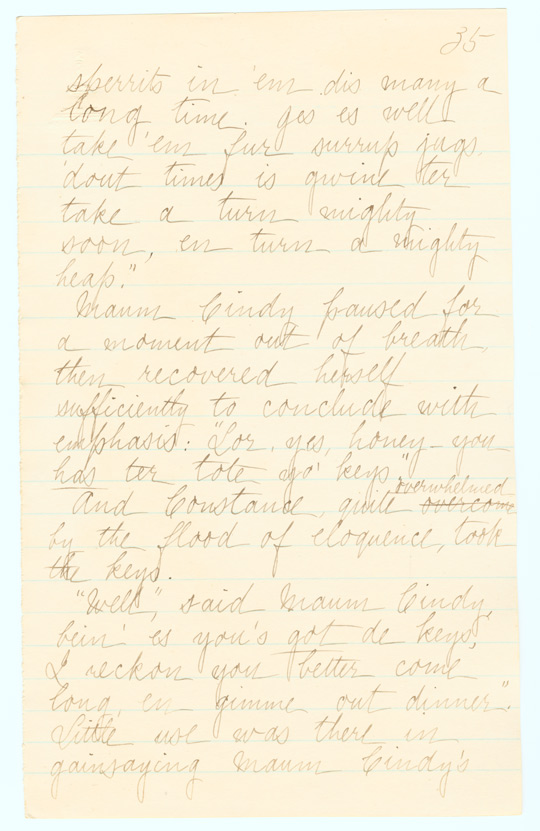 35
sperrits in 'em dis many a
long time. ges es well
take 'em fur surrup jugs.
'dout times is gwine ter
take a turn mighty
soon, en turn a mighty
heap."
Maum Cindy paused for
a moment out of breath,
then recovered herself
sufficiently to conclude with
emphasis: "Lor, yes, honey - you
has ter tote yo' keys."
overwhelmed
And Constance, quite overcome
by the flood of eloquence, took
the keys.
"Well", said Maum Cindy,
bein' es you's got de keys,
I reckon you better come
long, en gimme out dinner".
Little use was there in
gainsaying Maum Cindy's